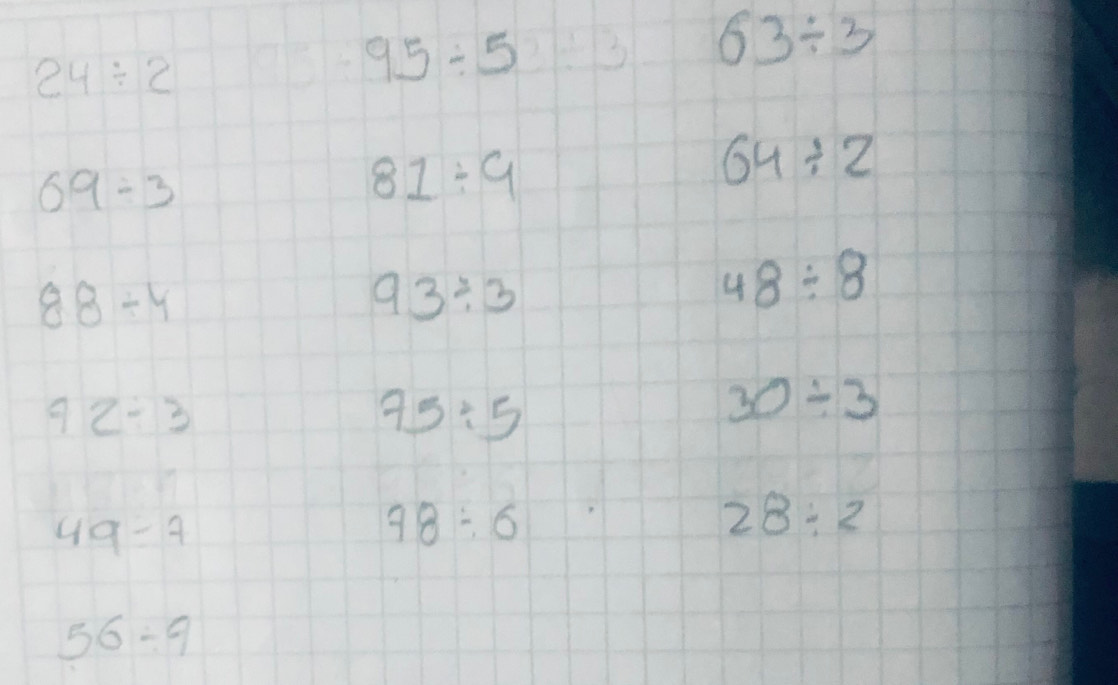 24÷2 95÷5 63÷3
69÷3 81÷9 64÷2
88÷4 93÷3 48÷8
72÷3 75÷5 30÷3
49÷7 78÷6 28÷2
56÷7